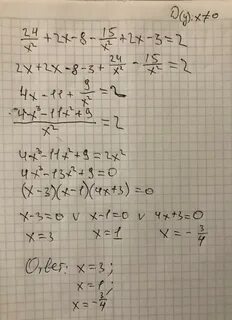 D(y): x≠0
24/x² + 2x - 8 - 15/x² + 2x - 3 = 2
2x + 2x - 8 - 3 + 24/x² - 15/x² = 2
4x - 11 + 9/x² = 2
(4x³ - 11x² + 9)/x² = 2
4x³ - 11x² + 9 = 2x²
4x³ - 13x² + 9 = 0
(x - 3)(x - 1)(4x + 3) = 0
x - 3 = 0 ∨ x - 1 = 0 ∨ 4x + 3 = 0
x = 3 x = 1 x = - 3/4
Ответ: x = 3;
x = 1;
x = - 3/4